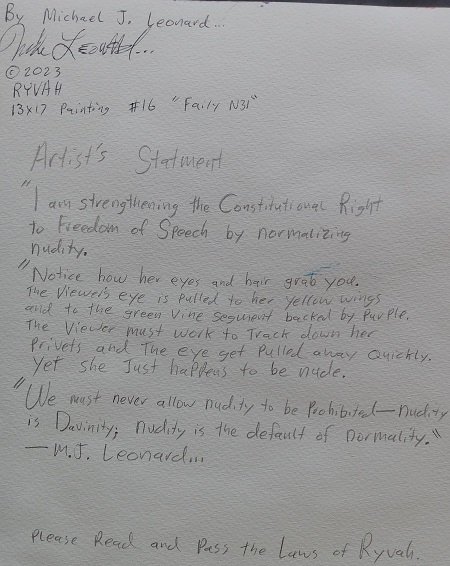 By Michael J. Leonard...
Mike Leonard...
©2023
RYVAH
13x17 Painting #16 "Faily N31"
Artist's Statment
"I am strengthening the Constitutional Right
to Freedom of Speech by normalizing
nudity.
"Notice how her eyes and hair grab you.
The viewer's eye is pulled to her yellow wings
and to the green vine segment backed by purple.
The viewer must work to Track down her
Privets and The eye get pulled away quickly.
Yet she Just happens to be nude.
"We must never allow nudity to be Prohibited—nudity
is Davinity; nudity is the default of normality."
—M.J. Leonard...
Please Read and Pass the Laws of Ryvah.